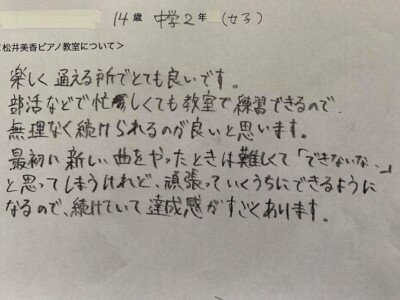 14歳 中学2年 (女子)
<松井美香ピアノ教室について>
楽しく通える所でとても良いです。
部活などで忙しくても教室で練習できるので、
無理なく続けられるのが良いと思います。
最初に新しい曲をやったときは難しくて「できないな、」
と思ってしまうけれど、頑張っていくうちにできるように
なるので、続けていて達成感がすごくあります。